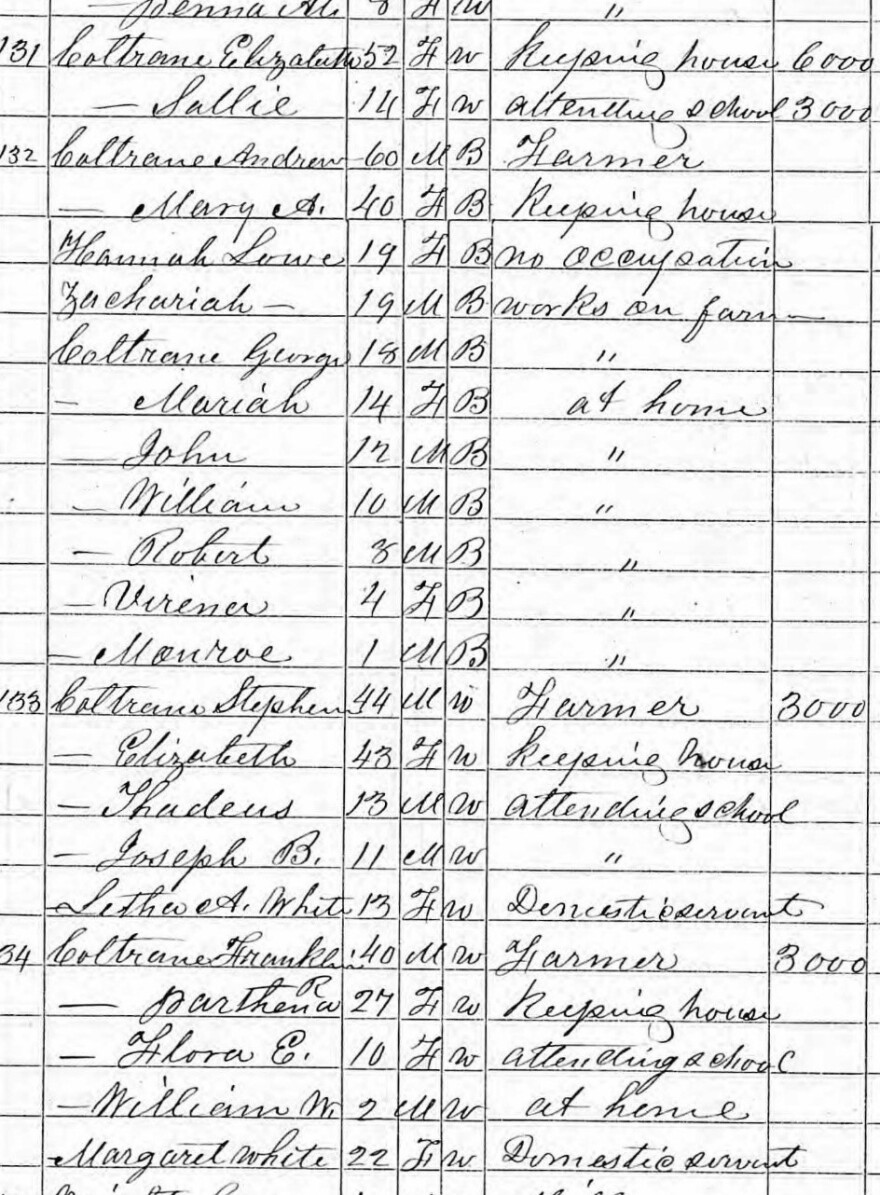 8 F W "
131 Coltrane Elizabeth 52 F W Keeping house 6000
— Sallie 14 F W attending school 3000
132 Coltrane Andrew 60 M B Farmer
— Mary A. 40 F B Keeping house
Hannah Lowe 19 F B no occupation
Zachariah — 19 M B works on farm
Coltrane George 18 M B "
— Mariah 14 F B at home
— John 12 M B "
— William 10 M B "
— Robert 8 M B "
— Virena 4 F B "
— Monroe 1 M B "
133 Coltrane Stephen 44 M W Farmer 3000
— Elizabeth 43 F W Keeping house
— Thadeus 13 M W attending school
— Joseph B. 11 M W "
Letha A. White 13 F W Domestic servant
34 Coltrane Franklin 40 M W Farmer 3000
— Parthena R 27 F W Keeping house
— Flora E. 10 F W attending school
— William W. 2 M W at home
Margaret White 22 F W Domestic servant